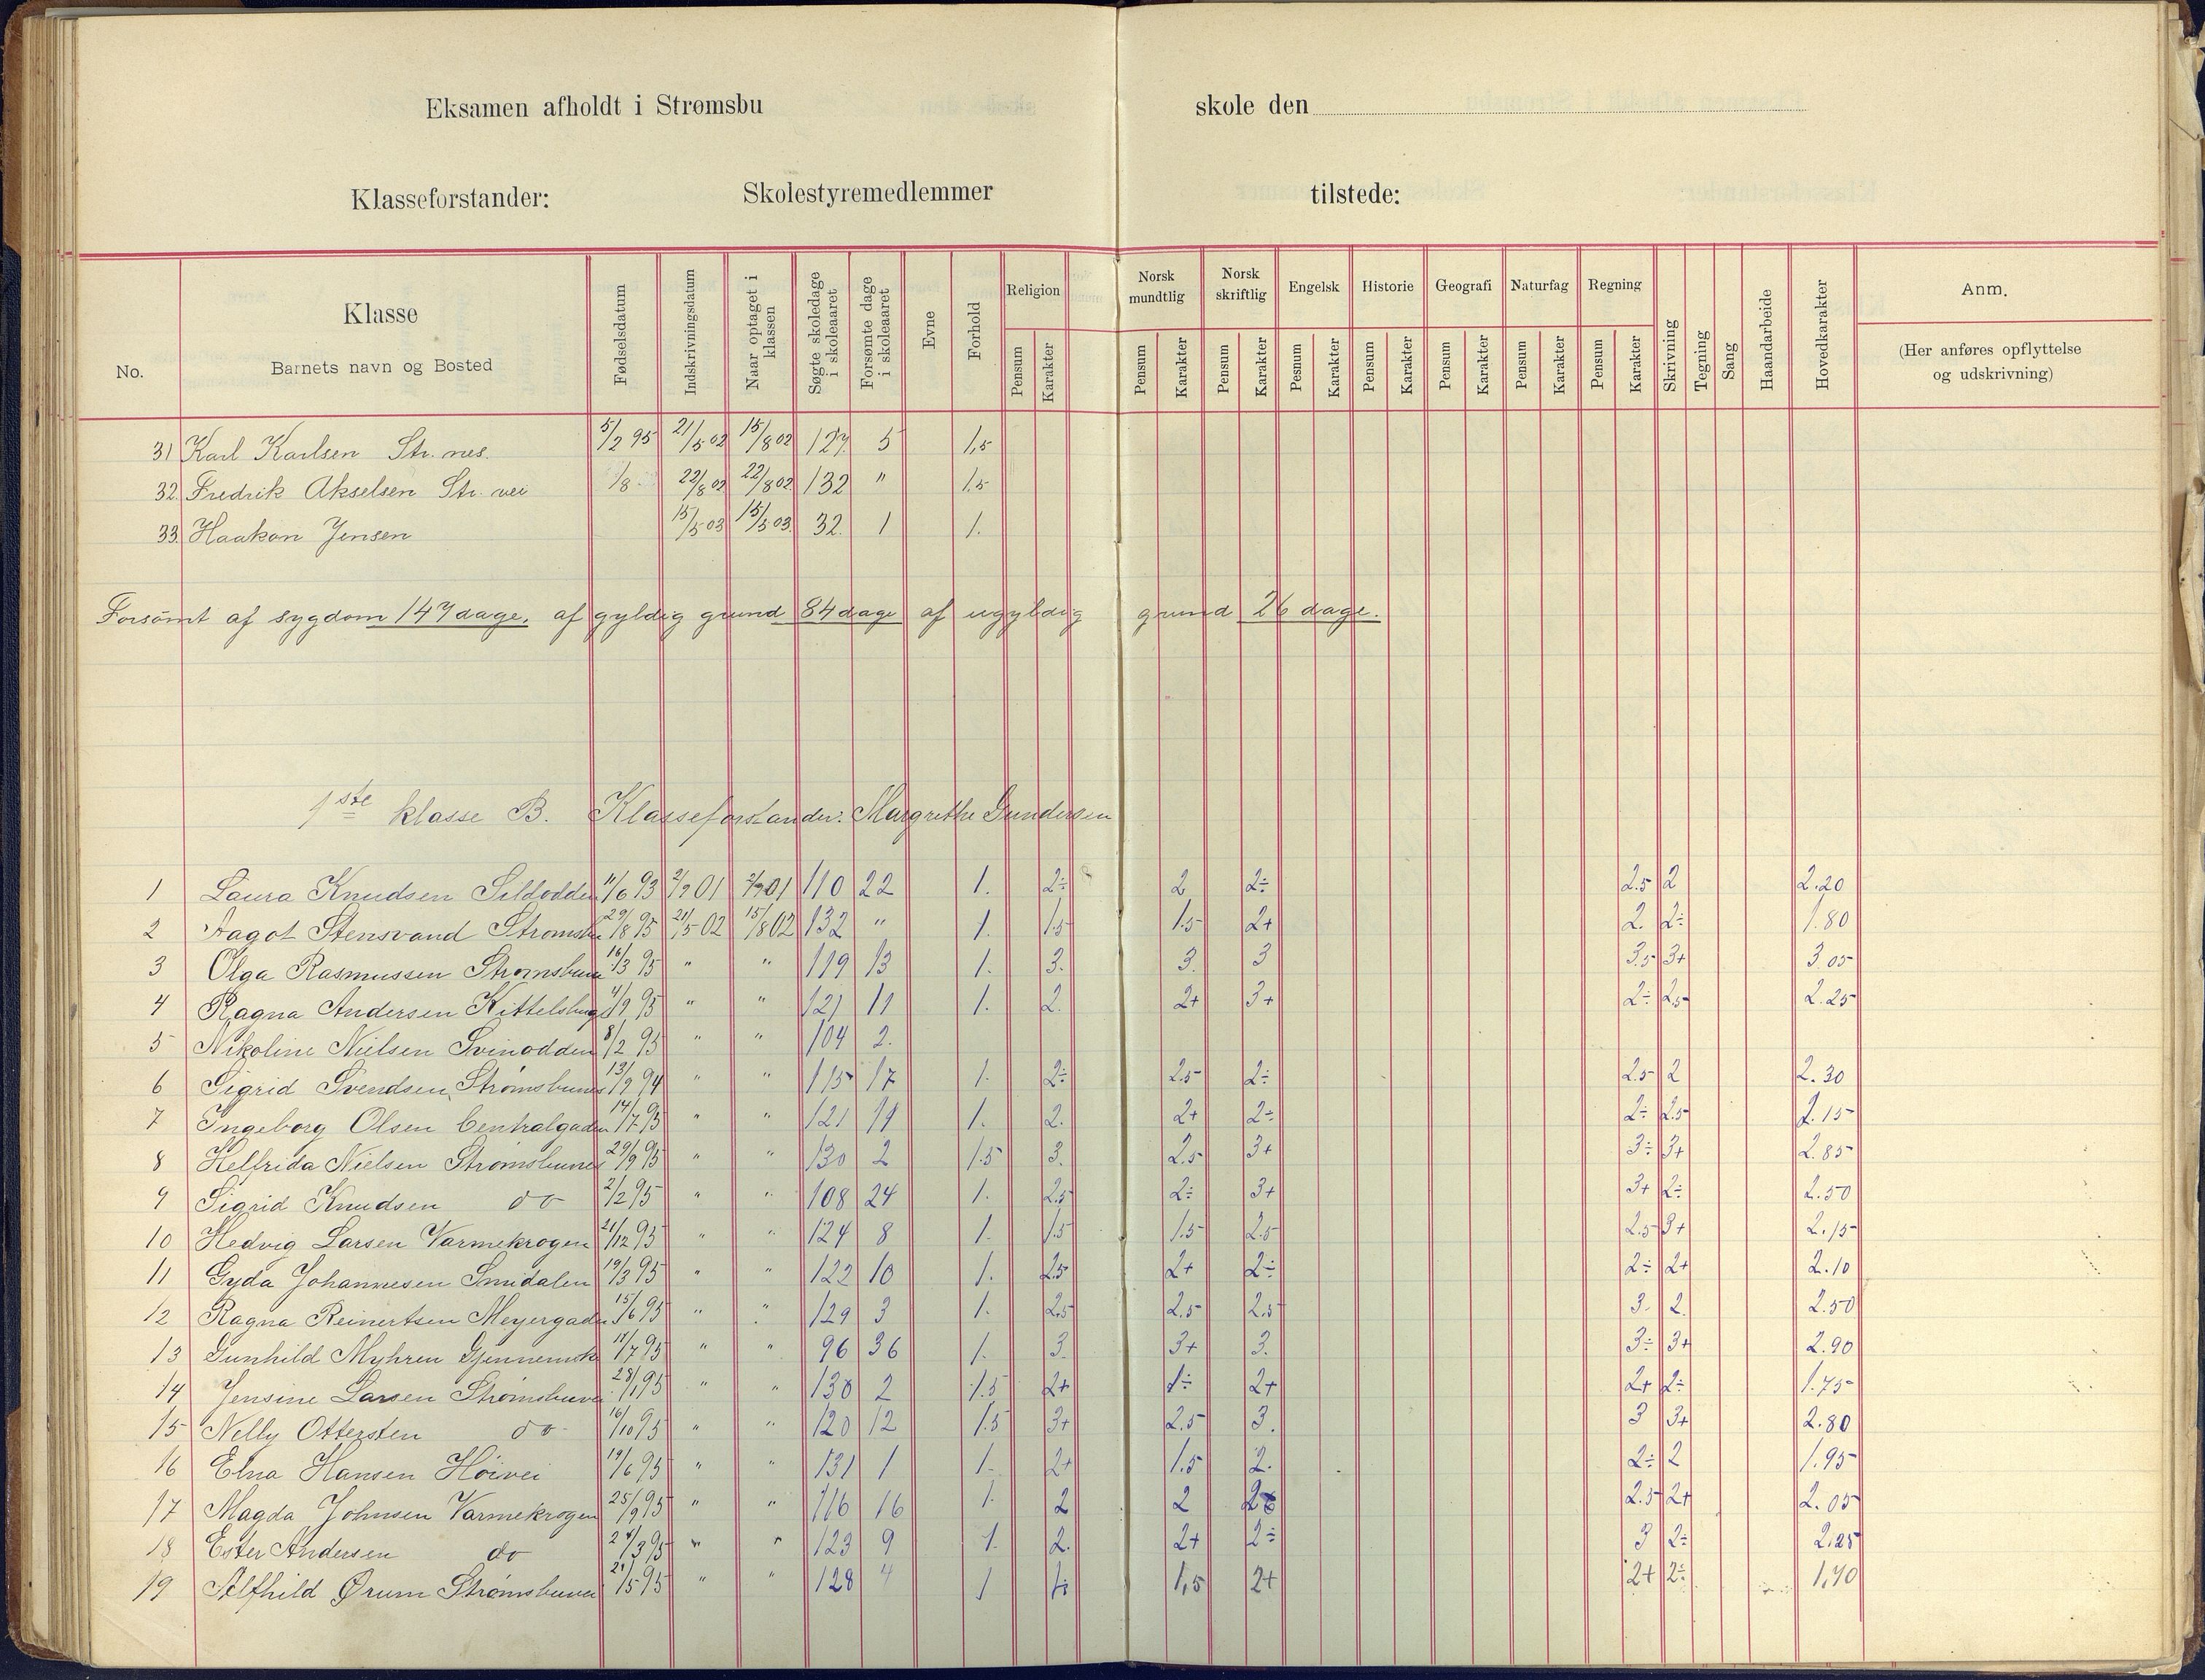 Eksamen afholdt i Strømsbu skole den
Klasseforstander: Skolestyremedlemmer tilstede:
No. Klasse Barnets navn og Bosted Fødselsdatum Indskrivningsdatum Naar optaget i klassen Søgte skoledage i skoleaaret Forsømte dage i skoleaaret Evne Forhold Religion Norsk mundtlig Norsk skriftlig Engelsk Historie Geografi Naturfag Regning Skrivning Tegning Sang Haandarbeide Hovedkarakter Anm.
Pensum Karakter Pensum Karakter Pensum Karakter Pesnum Karakter Pensum Karakter Pensum Karakter Pensum Karakter Pensum Karakter (Her anføres opflyttelse og udskrivning)
31 Karl Karlsen Str. nes. 5/2 95 21/5 02 15/8 02 127. 5 1,5
32. Fredrik Akselsen Str. vei 1/8 22/8 02 22/8 02 132 " 1.5
33. Haakon Jensen 15/5 03 15/5 03. 32. 1 1.
Forsømt af sygdom 147 dage, af gyldig grund 84 dage af ugyldig grund 26 dage.
1ste klasse B. Klasseforstander: Margrethe Gundersen
1 Laura Knudsen Sildodden 11/6 93 2/9 01 2/9 01 110 22 1. 2÷ 2 2÷ 2.5 2 2.20
2 Aagot Stensvand Strømsbu 29/8 95 21/5 02 15/8 02 132 " 1. 1.5 1.5 2+ 2. 2÷ 1.80
3 Olga Rasmussen Strømsbune 16/3 95 " " 119 13 1. 3. 3. 3 3.5 3+ 3.05
4 Ragna Andersen Kittelsbugt 4/9 95 " " 121 11 1. 2. 2+ 3+ 2÷ 2.5 2.25
5 Nikoline Nielsen Svinodden 8/2 95 " " 104 2.
6 Sigrid Svendsen, Strømsbunes 13/9 94 " " 115 17 1. 2÷ 2.5 2÷ 2.5 2 2.30
7 Ingeborg Olsen Centralgaden 14/7 95 " " 121 11 1. 2. 2+ 2÷ 2÷ 2.5 2.15
8 Helfrida Nielsen Strømsbunes 29/9 95 " " 130 2 1.5 3. 2.5 3+ 3÷ 3+ 2.85
9 Sigrid Knudsen do 2/2 95 " " 108 24 1. 2.5 2÷ 3+ 3+ 2÷ 2.50
10 Hedvig Larsen Varmekrogen 21/12 95 " " 124 8 1. 1.5 1.5 2.5 2.5 3+ 2.15
11 Gyda Johannesen Smidalen 19/3 95 " " 122 10 1. 2.5 2+ 2÷ 2÷ 2+ 2.10
12 Ragna Reinertsen Meyergaden 15/6 95 " " 129 3 1. 2.5 2.5 2.5 3. 2. 2.50
13 Gunhild Myhren 11/7 95 " " 96 36 1. 3. 3+ 3. 3÷ 3+ 2.90
14 Jensine Larsen Strømsbuvei 28/1 95 " " 130 2 1.5 2+ 1÷ 2+ 2+ 2÷ 1.75
15 Nelly Ottersten do 16/10 95 " " 120 12 1.5 3+ 2.5 3. 3 3+ 2.80
16 Elna Hansen Høivei 19/6 95 " " 131 1 1. 2+ 1.5 2. 2÷ 2 1.95
17 Magda Johnsen Varmekrogen 25/9 95 " " 116 16 1. 2 2 2 2.5 2+ 2.05
18 Ester Andersen do 24/3 95 " " 123 9 1. 2. 2+ 2÷ 3 2÷ 2.25
19 Alfhild Ørum Strømsbuvei 21/5 95 " " 128 4 1 1÷ 1,5 2+ 2+ 2÷ 1,70